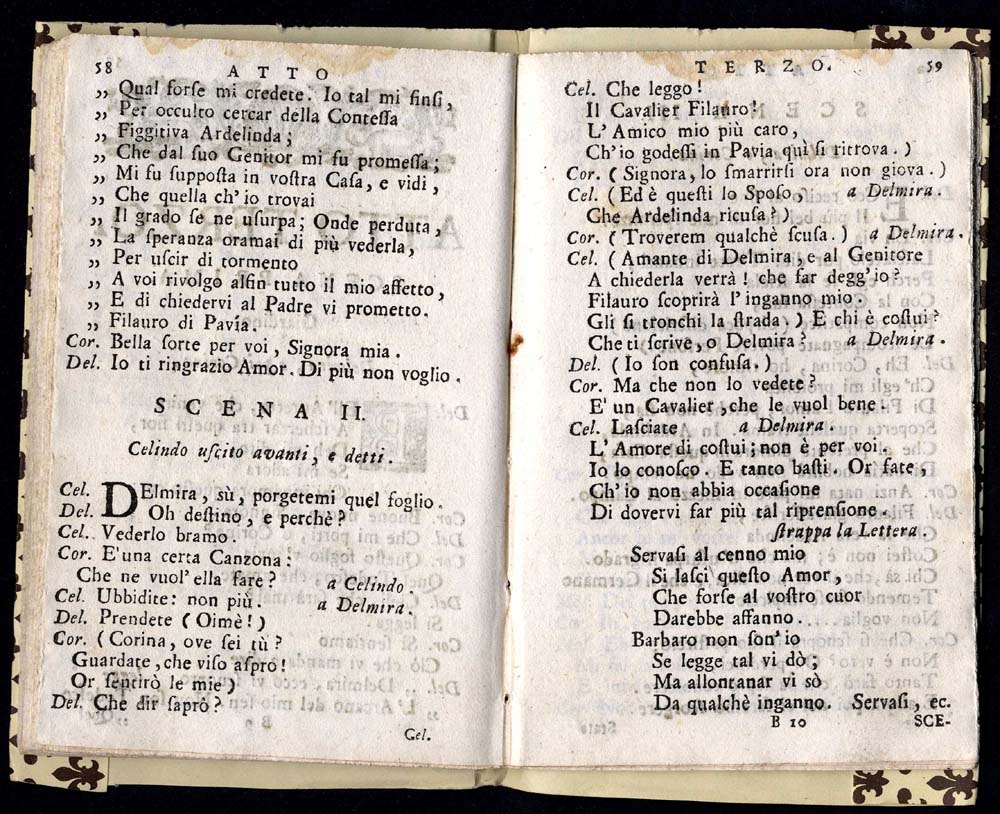 58
ATTO
„ Qual forse mi credete. Io tal mi finsi,
„ Per occulto cercar della Contessa
„ Figgitiva Ardelinda;
„ Che dal suo Genitor mi fu promessa;
„ Mi fu supposta in vostra Casa, e vidi,
„ Che quella ch'io trovai
„ Il grado se ne usurpa; Onde perduta,
„ La speranza oramai di più vederla,
„ Per uscir di tormento
„ A voi rivolgo alfin tutto il mio affetto,
„ E di chiedervi al Padre vi prometto.
„ Filauro di Pavía.
Cor. Bella sorte per voi, Signora mia.
Del. Io ti ringrazio Amor. Di più non voglio.
SCENA II.
Celindo uscito avanti, e detti.
Cel. DElmira, sù, porgetemi quel foglio.
Del. Oh destino, e perchè?
Cel. Vederlo bramo.
Cor. E'una certa Canzona:
Che ne vuol'ella fare? a Celindo.
Cel. Ubbidite: non più. a Delmira.
Del. Prendete (Oimè!)
Cor. (Corina, ove sei tù?
Guardate, che viso aspro!
Or sentirò le mie)
Del. Che dir saprò?
Cel.
TERZO.
59
Cel. Che leggo!
Il Cavalier Filauro!
L'Amico mio più caro,
Ch'io godessi in Pavia quì si ritrova.)
Cor. (Signora, lo smarrirsi ora non giova.)
Cel. (Ed è questi lo Sposo, a Delmira.
Che Ardelinda ricusa?)
Cor. (Troverem qualchè scusa.) a Delmira.
Cel. (Amante di Delmira, e al Genitore
A chiederla verrà! che far degg'io?
Filauro scoprirà l'inganno mio.
Gli si tronchi la strada.) E chi è costui?
Che ti scrive, o Delmira? a Delmira.
Del. (Io son confusa.)
Cor. Ma che non lo vedete?
E' un Cavalier, che le vuol bene.
Cel. Lasciate a Delmira.
L'Amore di costui; non è per voi.
Io lo conosco. E tanto basti. Or fate,
Ch'io non abbia occasione
Di dovervi far più tal riprensione.
strappa la Lettera
Servasi al cenno mio
Si lasci questo Amor,
Che forse al vostro cuor
Darebbe affanno.
Barbaro non son'io
Se legge tal vi dò;
Ma allontanar vi sò
Da qualchè inganno. Servasi, ec.
B 10 SCE-